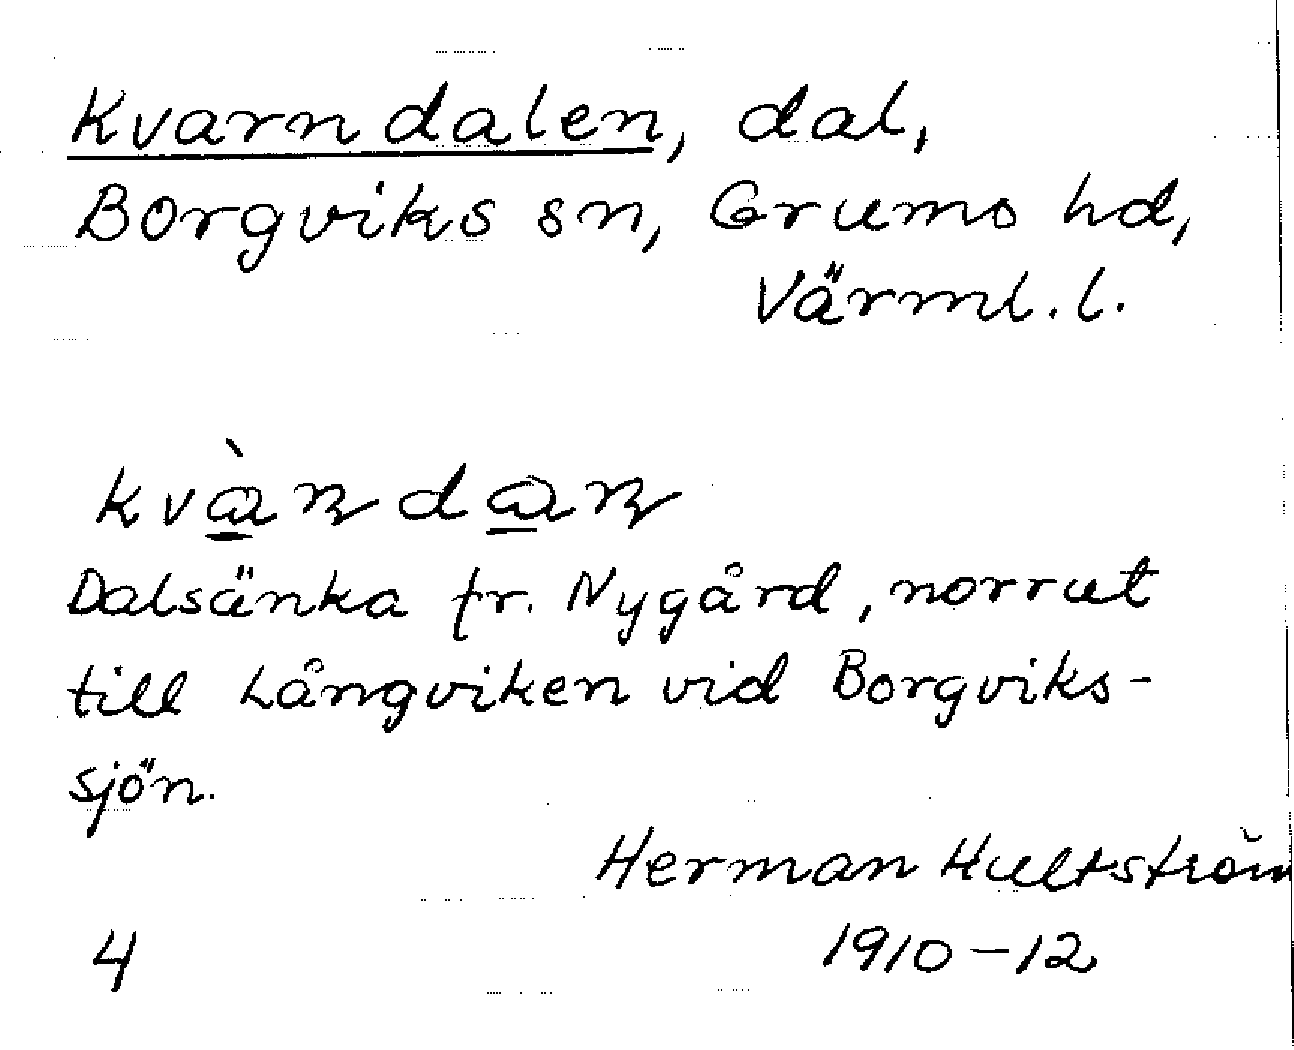 Kvarndalen, dal,
Borgviks sn, Grums hd,
Värml. l.
kvàɳdaɳ
Dalsänka fr. Nygård, norrut
till Långviken vid Borgviks-
sjön.
Herman Hultström
1910-12
4